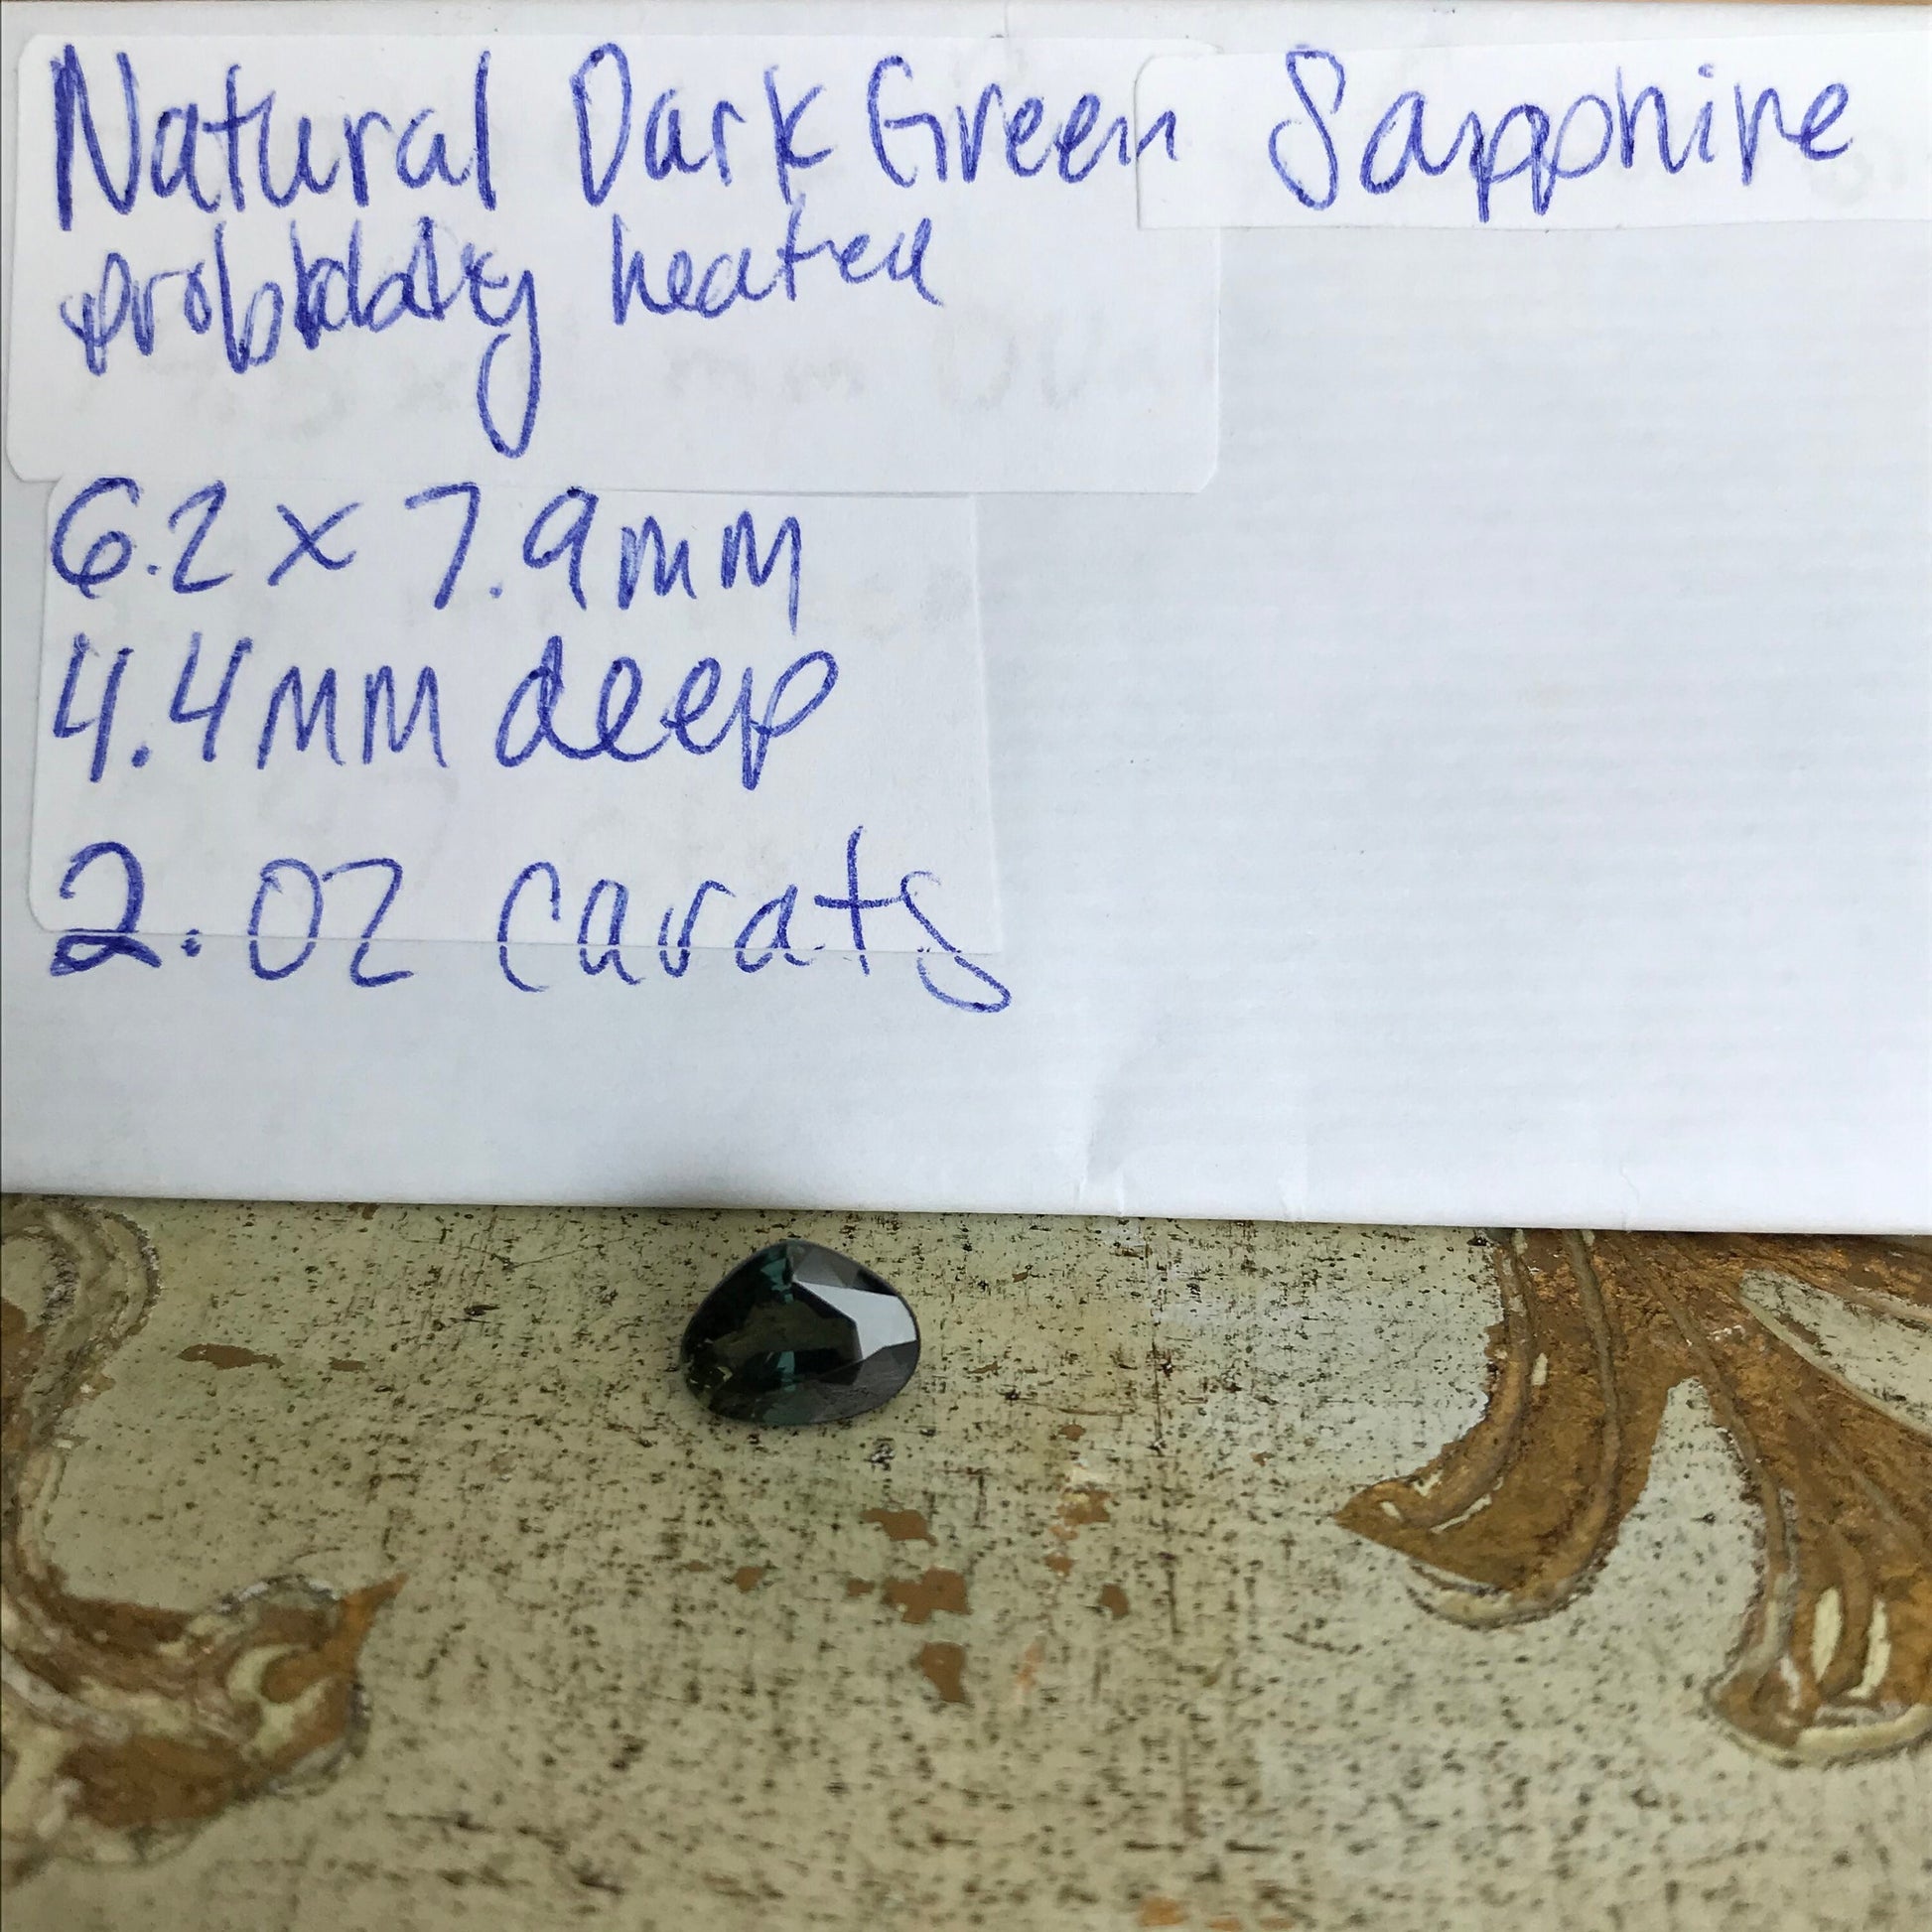 Natural Dark Green Sapphire
probbably heated
6.2 x 7.9mm
4.4mm deep
2.02 carats